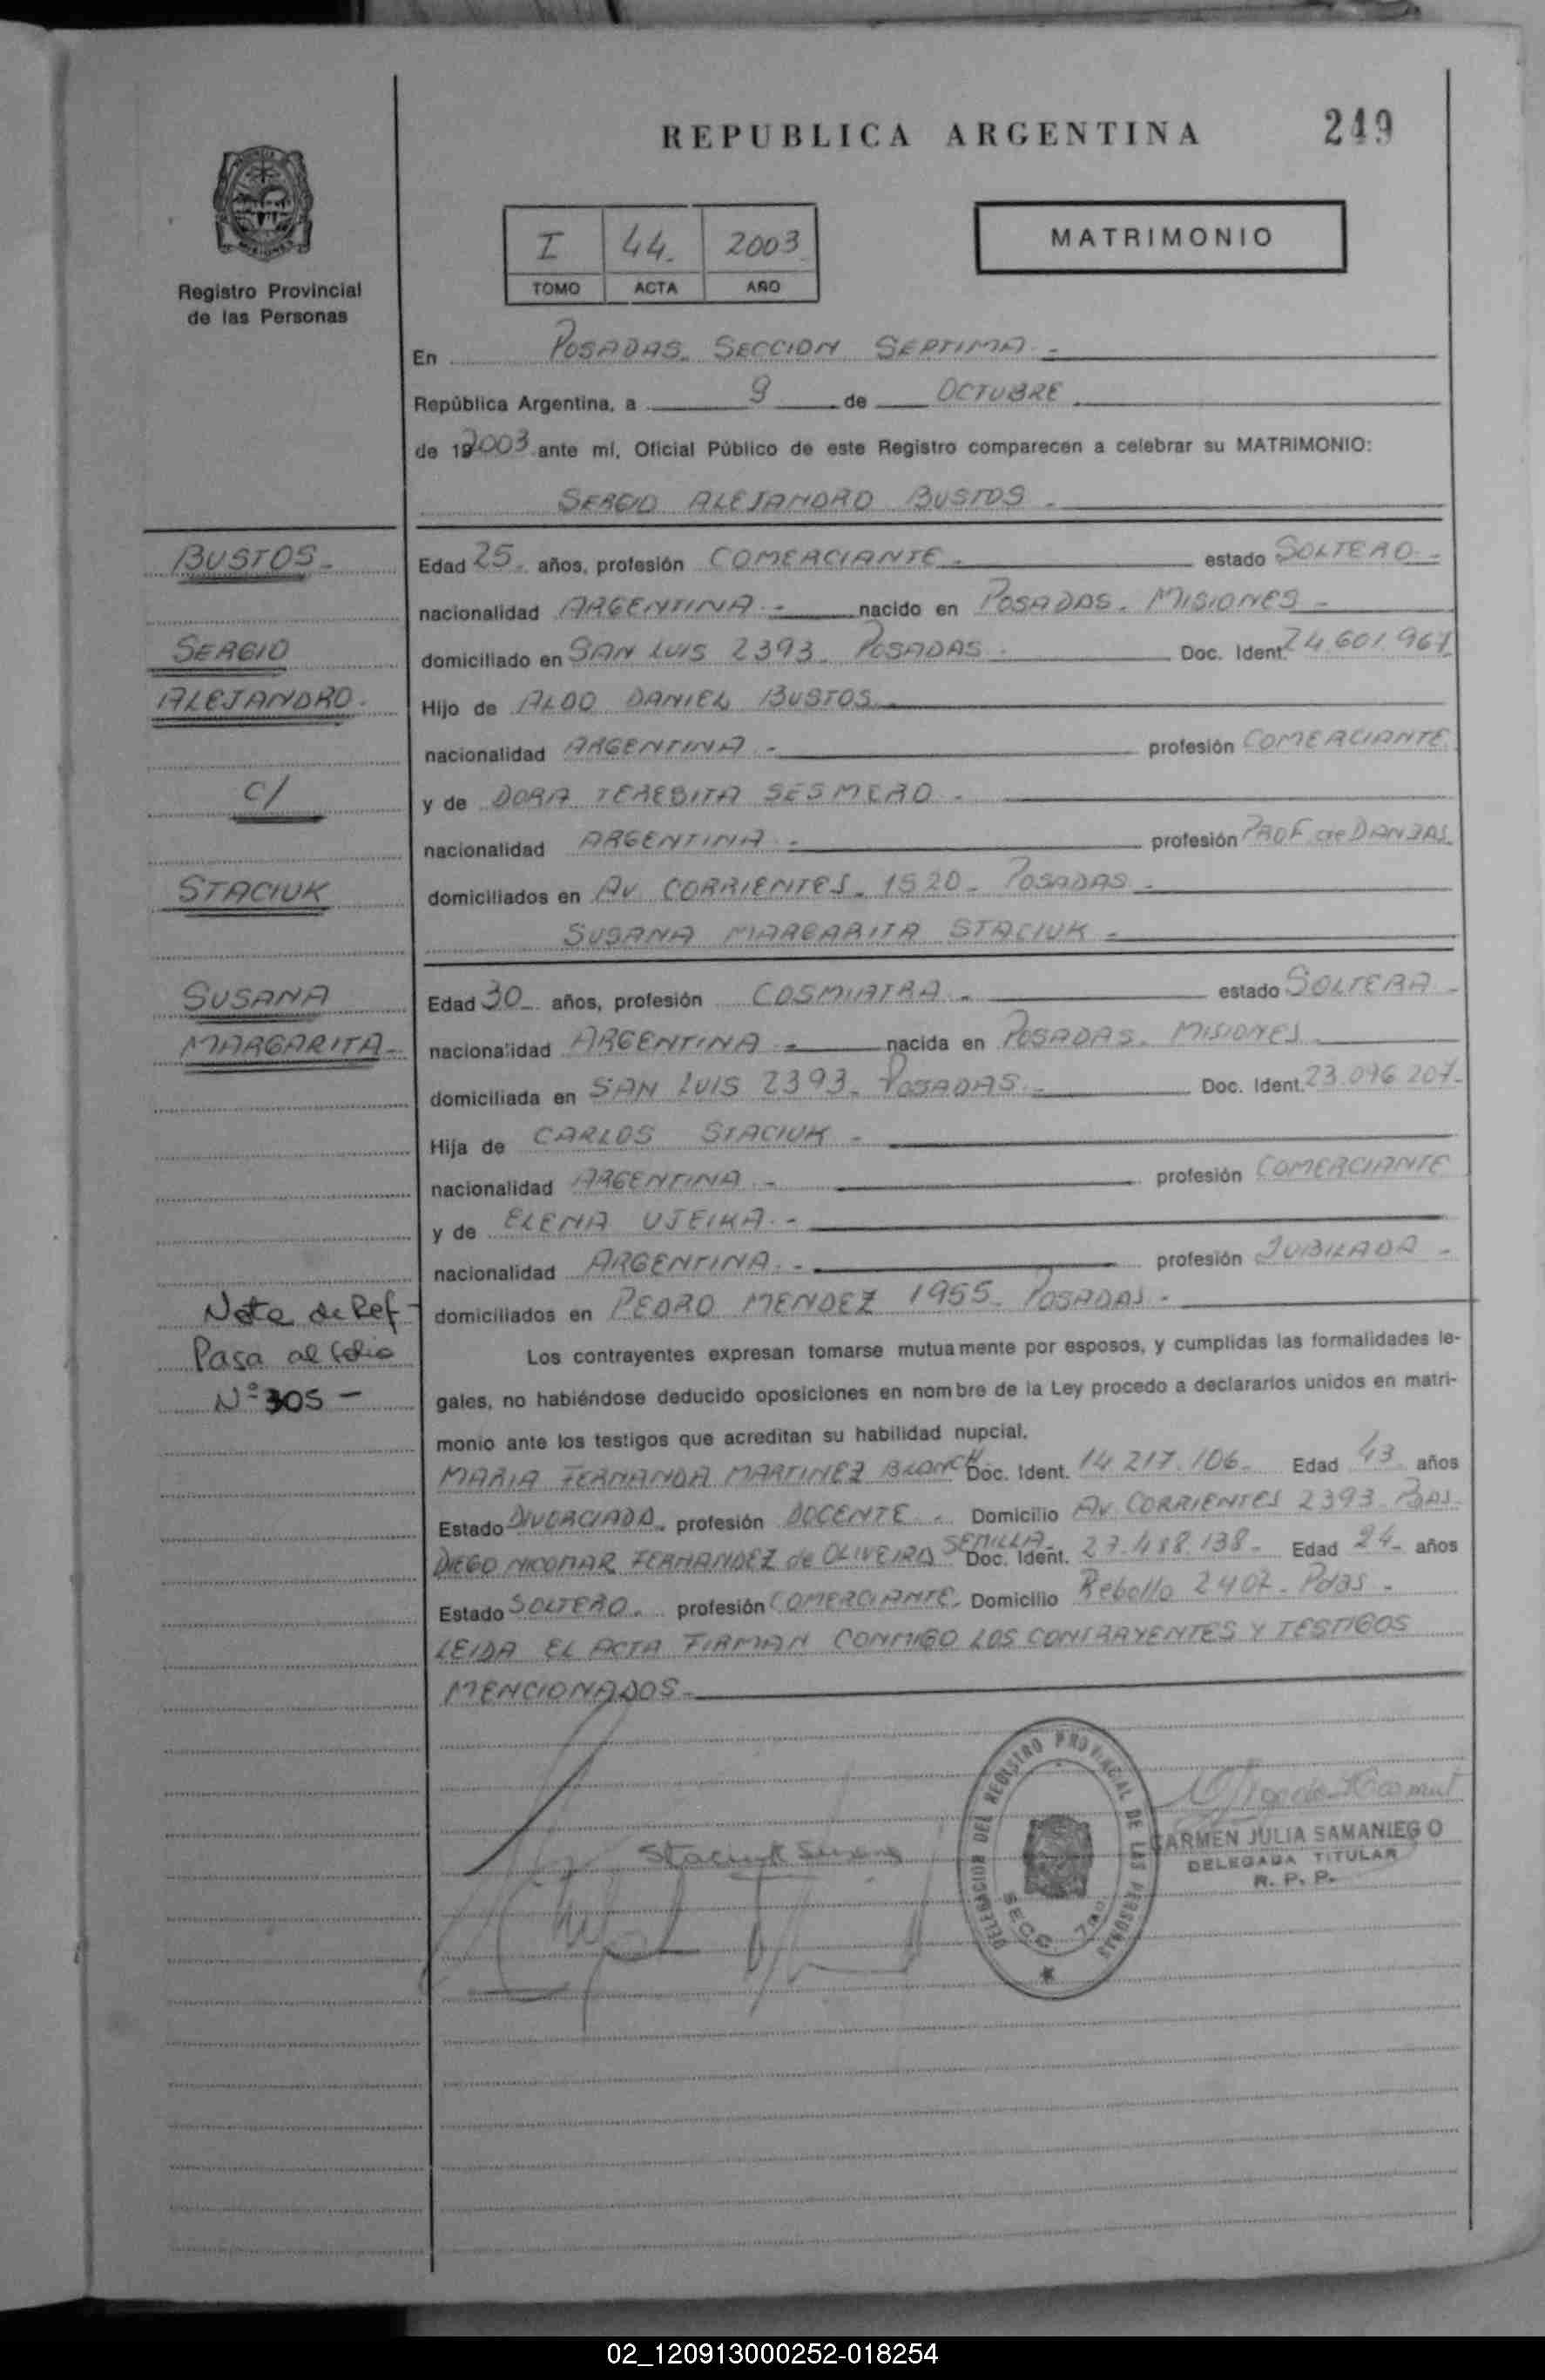 REPUBLICA ARGENTINA
249
I 44. 2003
TOMO ACTA AÑO
MATRIMONIO
Registro Provincial
de las Personas
En POSADAS. SECCION SEPTIMA -
República Argentina, a 9 de OCTUBRE
de 2003 ante mí, Oficial Público de este Registro comparecen a celebrar su MATRIMONIO:
SERGIO ALEJANDRO BUSTOS -
BUSTOS -
Edad 25. años, profesión COMERCIANTE. estado SOLTERO -
nacionalidad ARGENTINA - nacido en POSADAS. MISIONES -
SERGIO
domiciliado en SAN LUIS 2393. POSADAS. Doc. Ident. 24.601.961
ALEJANDRO.
Hijo de ALDO DANIEL BUSTOS
nacionalidad ARGENTINA - profesión COMERCIANTE
C/
y de DORA TERESITA SESMERO -
nacionalidad ARGENTINA - profesión PROF de DANZAS
STACIUK
domiciliados en AV. CORRIENTES. 1520 - POSADAS -
SUSANA MARGARITA STACIUK -
SUSANA
Edad 30 años, profesión COSMIATRA - estado SOLTERA -
MARGARITA -
nacionalidad ARGENTINA - nacida en POSADAS. MISIONES
domiciliada en SAN LUIS 2393 - POSADAS. - Doc. Ident. 23.096.207 -
Hija de CARLOS STACIUK -
nacionalidad ARGENTINA - profesión COMERCIANTE
y de ELENA UJEIKA. -
nacionalidad ARGENTINA. - profesión JUBILADA -
Nota de Ref -
domiciliados en PEDRO MENDEZ 1955. POSADAS -
Pasa al folio
Los contrayentes expresan tomarse mutuamente por esposos, y cumplidas las formalidades le-
N° 305 -
gales, no habiéndose deducido oposiciones en nombre de la Ley procedo a declararlos unidos en matri-
monio ante los testigos que acreditan su habilidad nupcial.
MARIA FERNANDA MARTINEZ BLANCH Doc. Ident. 14.217.106 - Edad 43 años
Estado DIVORCIADA. profesión DOCENTE - Domicilio AV. CORRIENTES 2393
DIEGO NICOMAR FERNANDEZ de OLIVEIRA SEMILLA Doc. Ident. 27.488.138 - Edad 24 - años
Estado SOLTERO. profesión COMERCIANTE. Domicilio Rebollo 2407 - Pdas -
LEIDA EL ACTA FIRMAN CONMIGO LOS CONTRAYENTES Y TESTIGOS
MENCIONADOS -
Staciuk Susana
DELEGACION DEL REGISTRO PROVINCIAL DE LAS PERSONAS
SECC. 7ma
CARMEN JULIA SAMANIEGO
DELEGADA TITULAR
R. P. P.
02_120913000252-018254